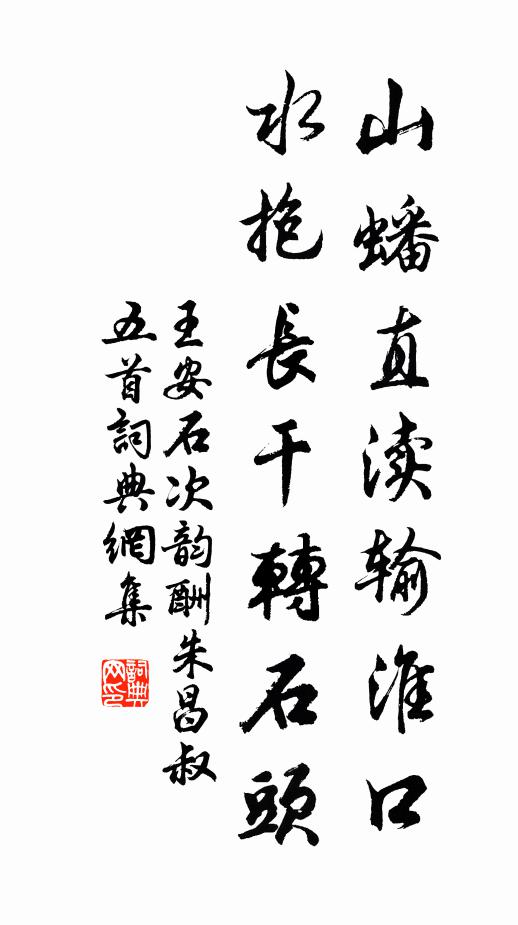 山蟠直渎输淮口
水抱長干轉石頭
王安石次韵酬朱昌叔
五首詞典網集
詞典网印